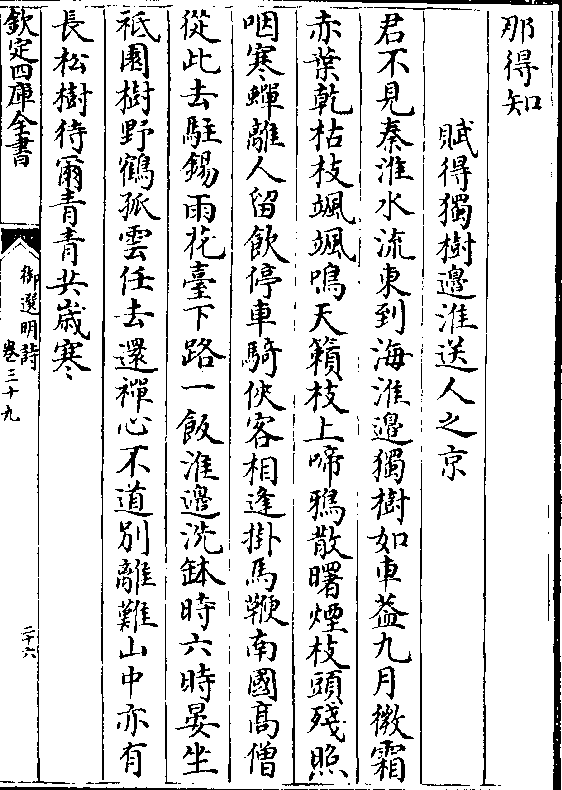 那得知
賦得獨樹邊淮送人之京
君不見秦淮水流東到海淮邊獨樹如車葢九月微霜
赤葉乾枯枝颯颯鳴天籟枝上啼鴉散曙煙枝頭殘照
咽寒蟬離人留飲停車騎俠客相逢掛馬鞭南國髙僧
從此去駐錫雨花臺下路一飯淮邊洗鉢時六時晏坐
祇園樹野鶴孤雲任去還禪心不道別離難山中亦有
長松樹待爾青青共歲寒
欽定四庫全書
御選明詩
卷三十九
二十六